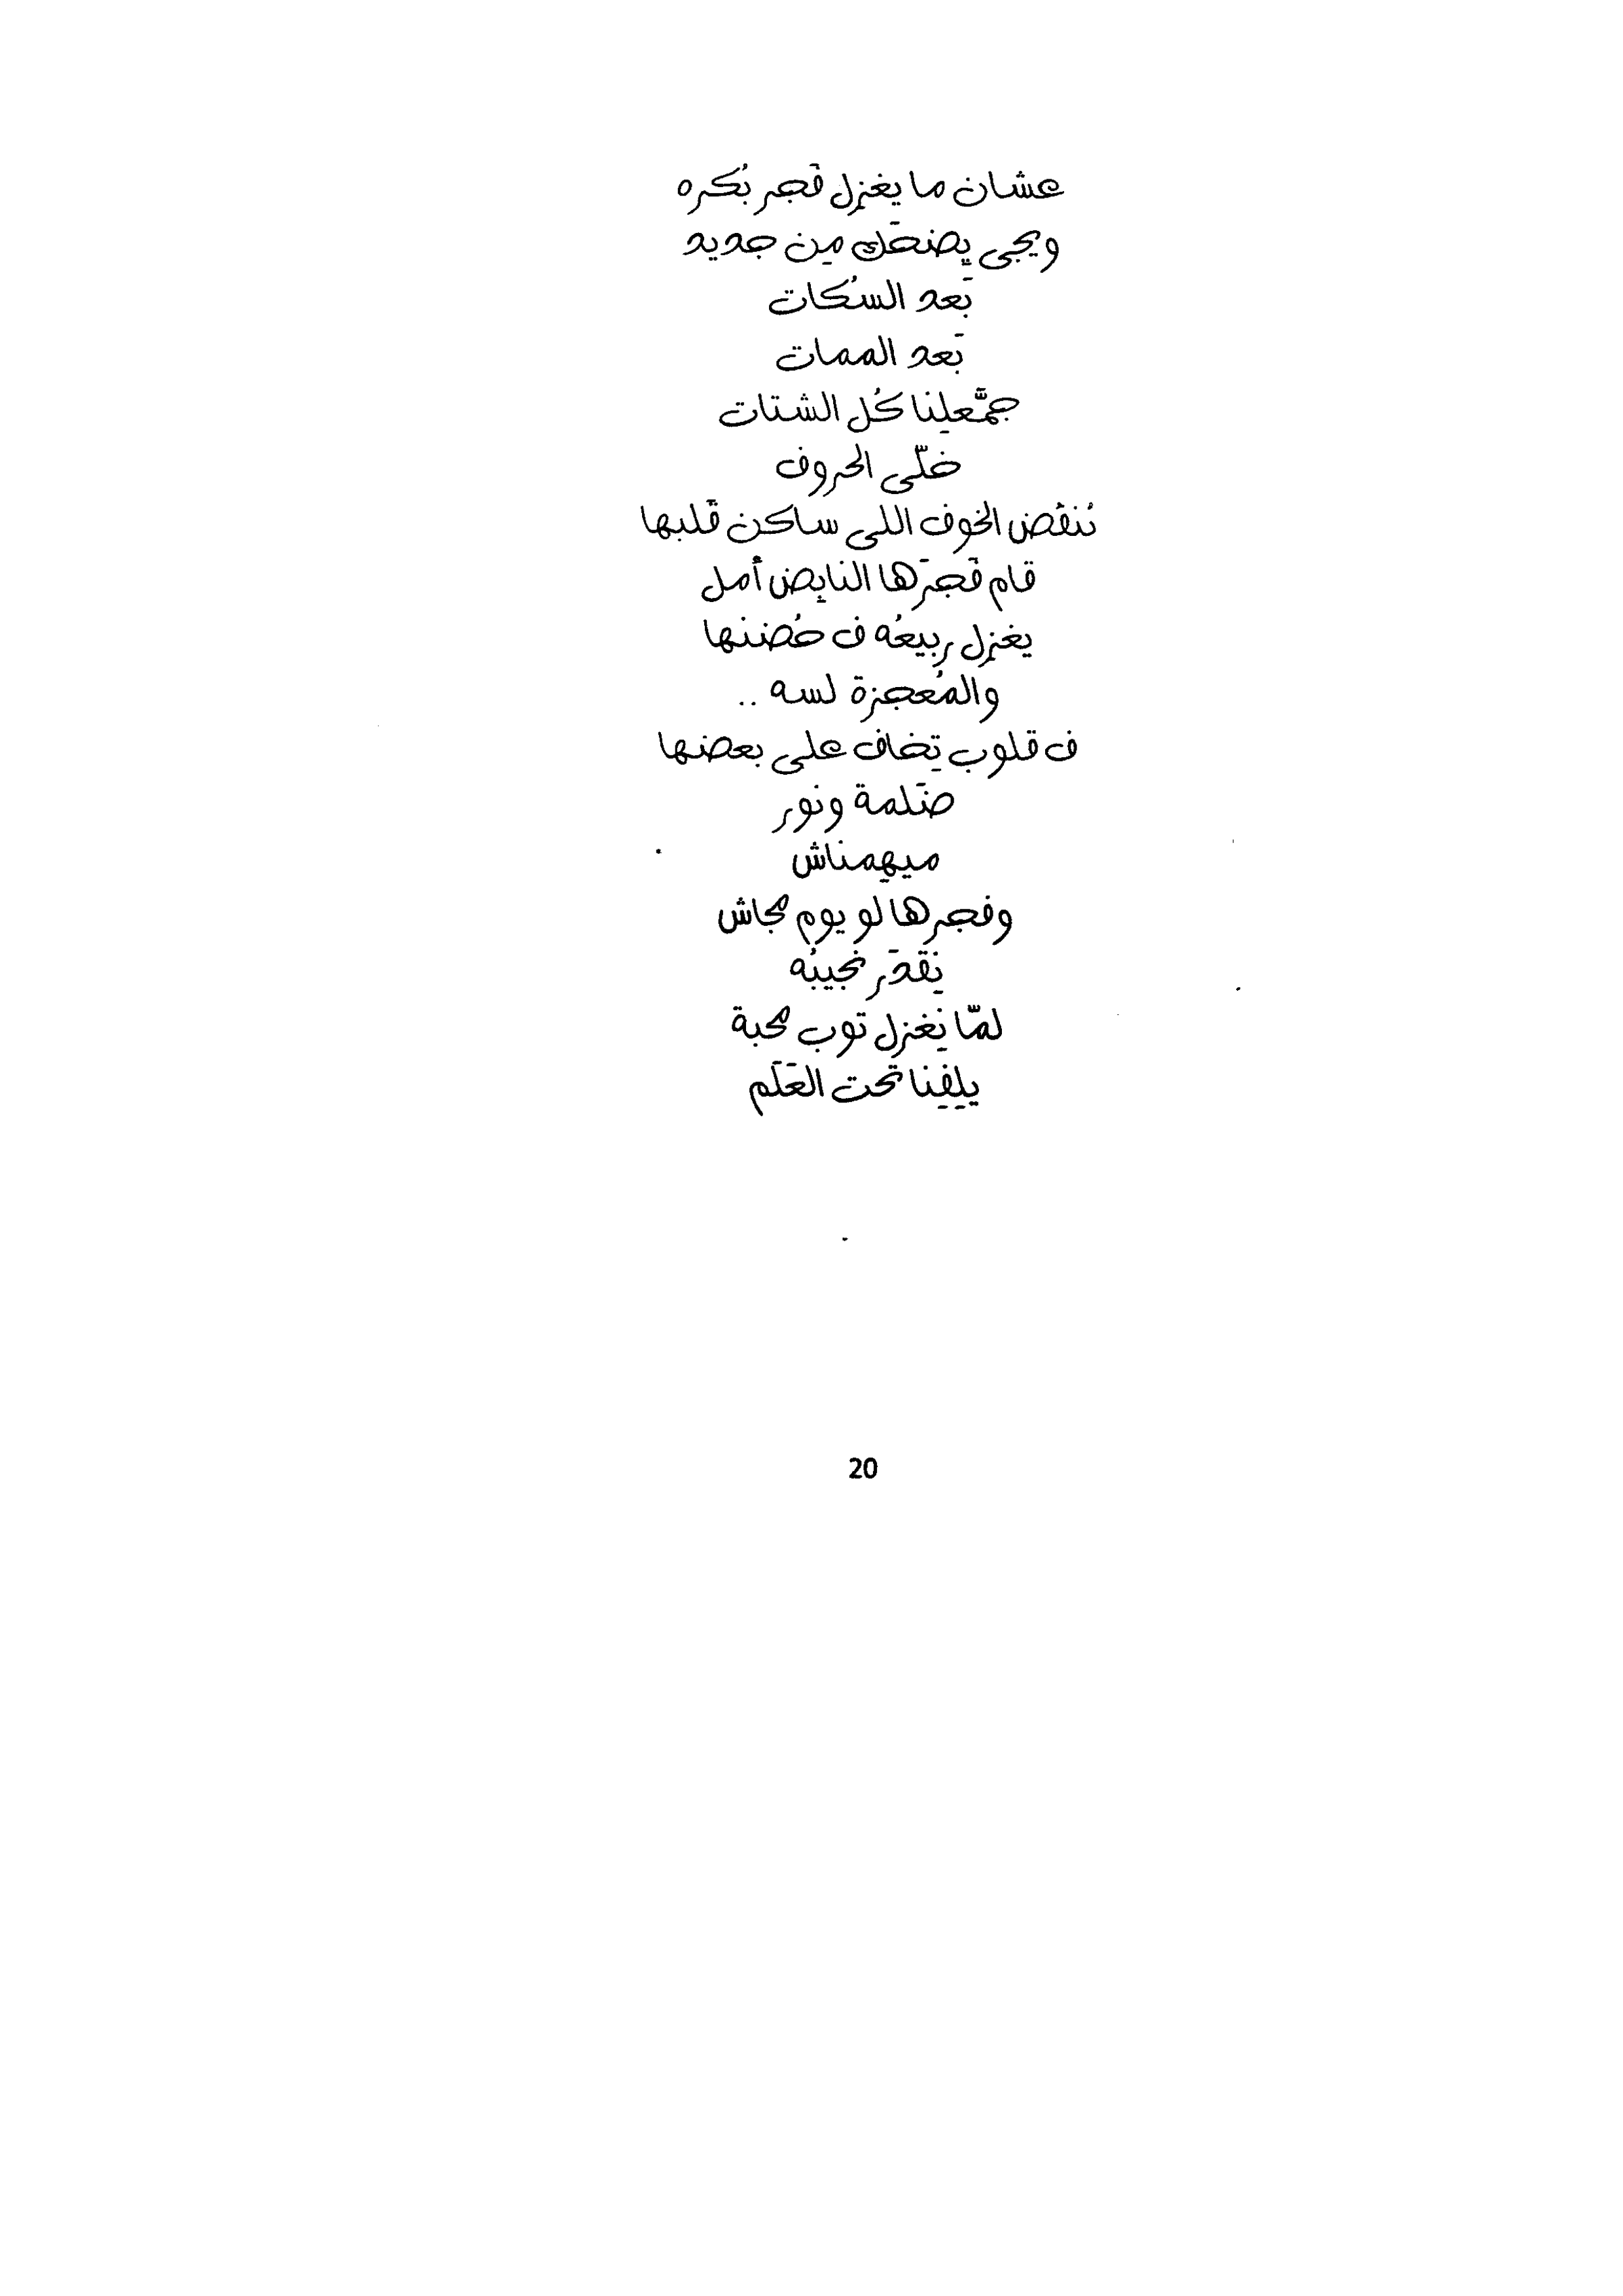 عشان ما يغزل فَجر بُكره
ويجى يِضحَك مِن جديد
بَعد السُكات
بَعد الممات
جمَّعلِنا كُل الشتات
خلّى الحروف
تُنفُض الخوف اللى ساكن قَلبها
قام فَجرَها النابِض أمل
يغزل ربيعُه ف حُضنها
والمُعجزة لسه ..
ف قلوب تِخاف على بعضها
ضَلمة ونور
ميهِمناش
وفجرها لو يوم مجاش
نِقدَر نجيبُه
لمّا نِغزل توب محبة
يلِفِنا تحت العَلَم
20